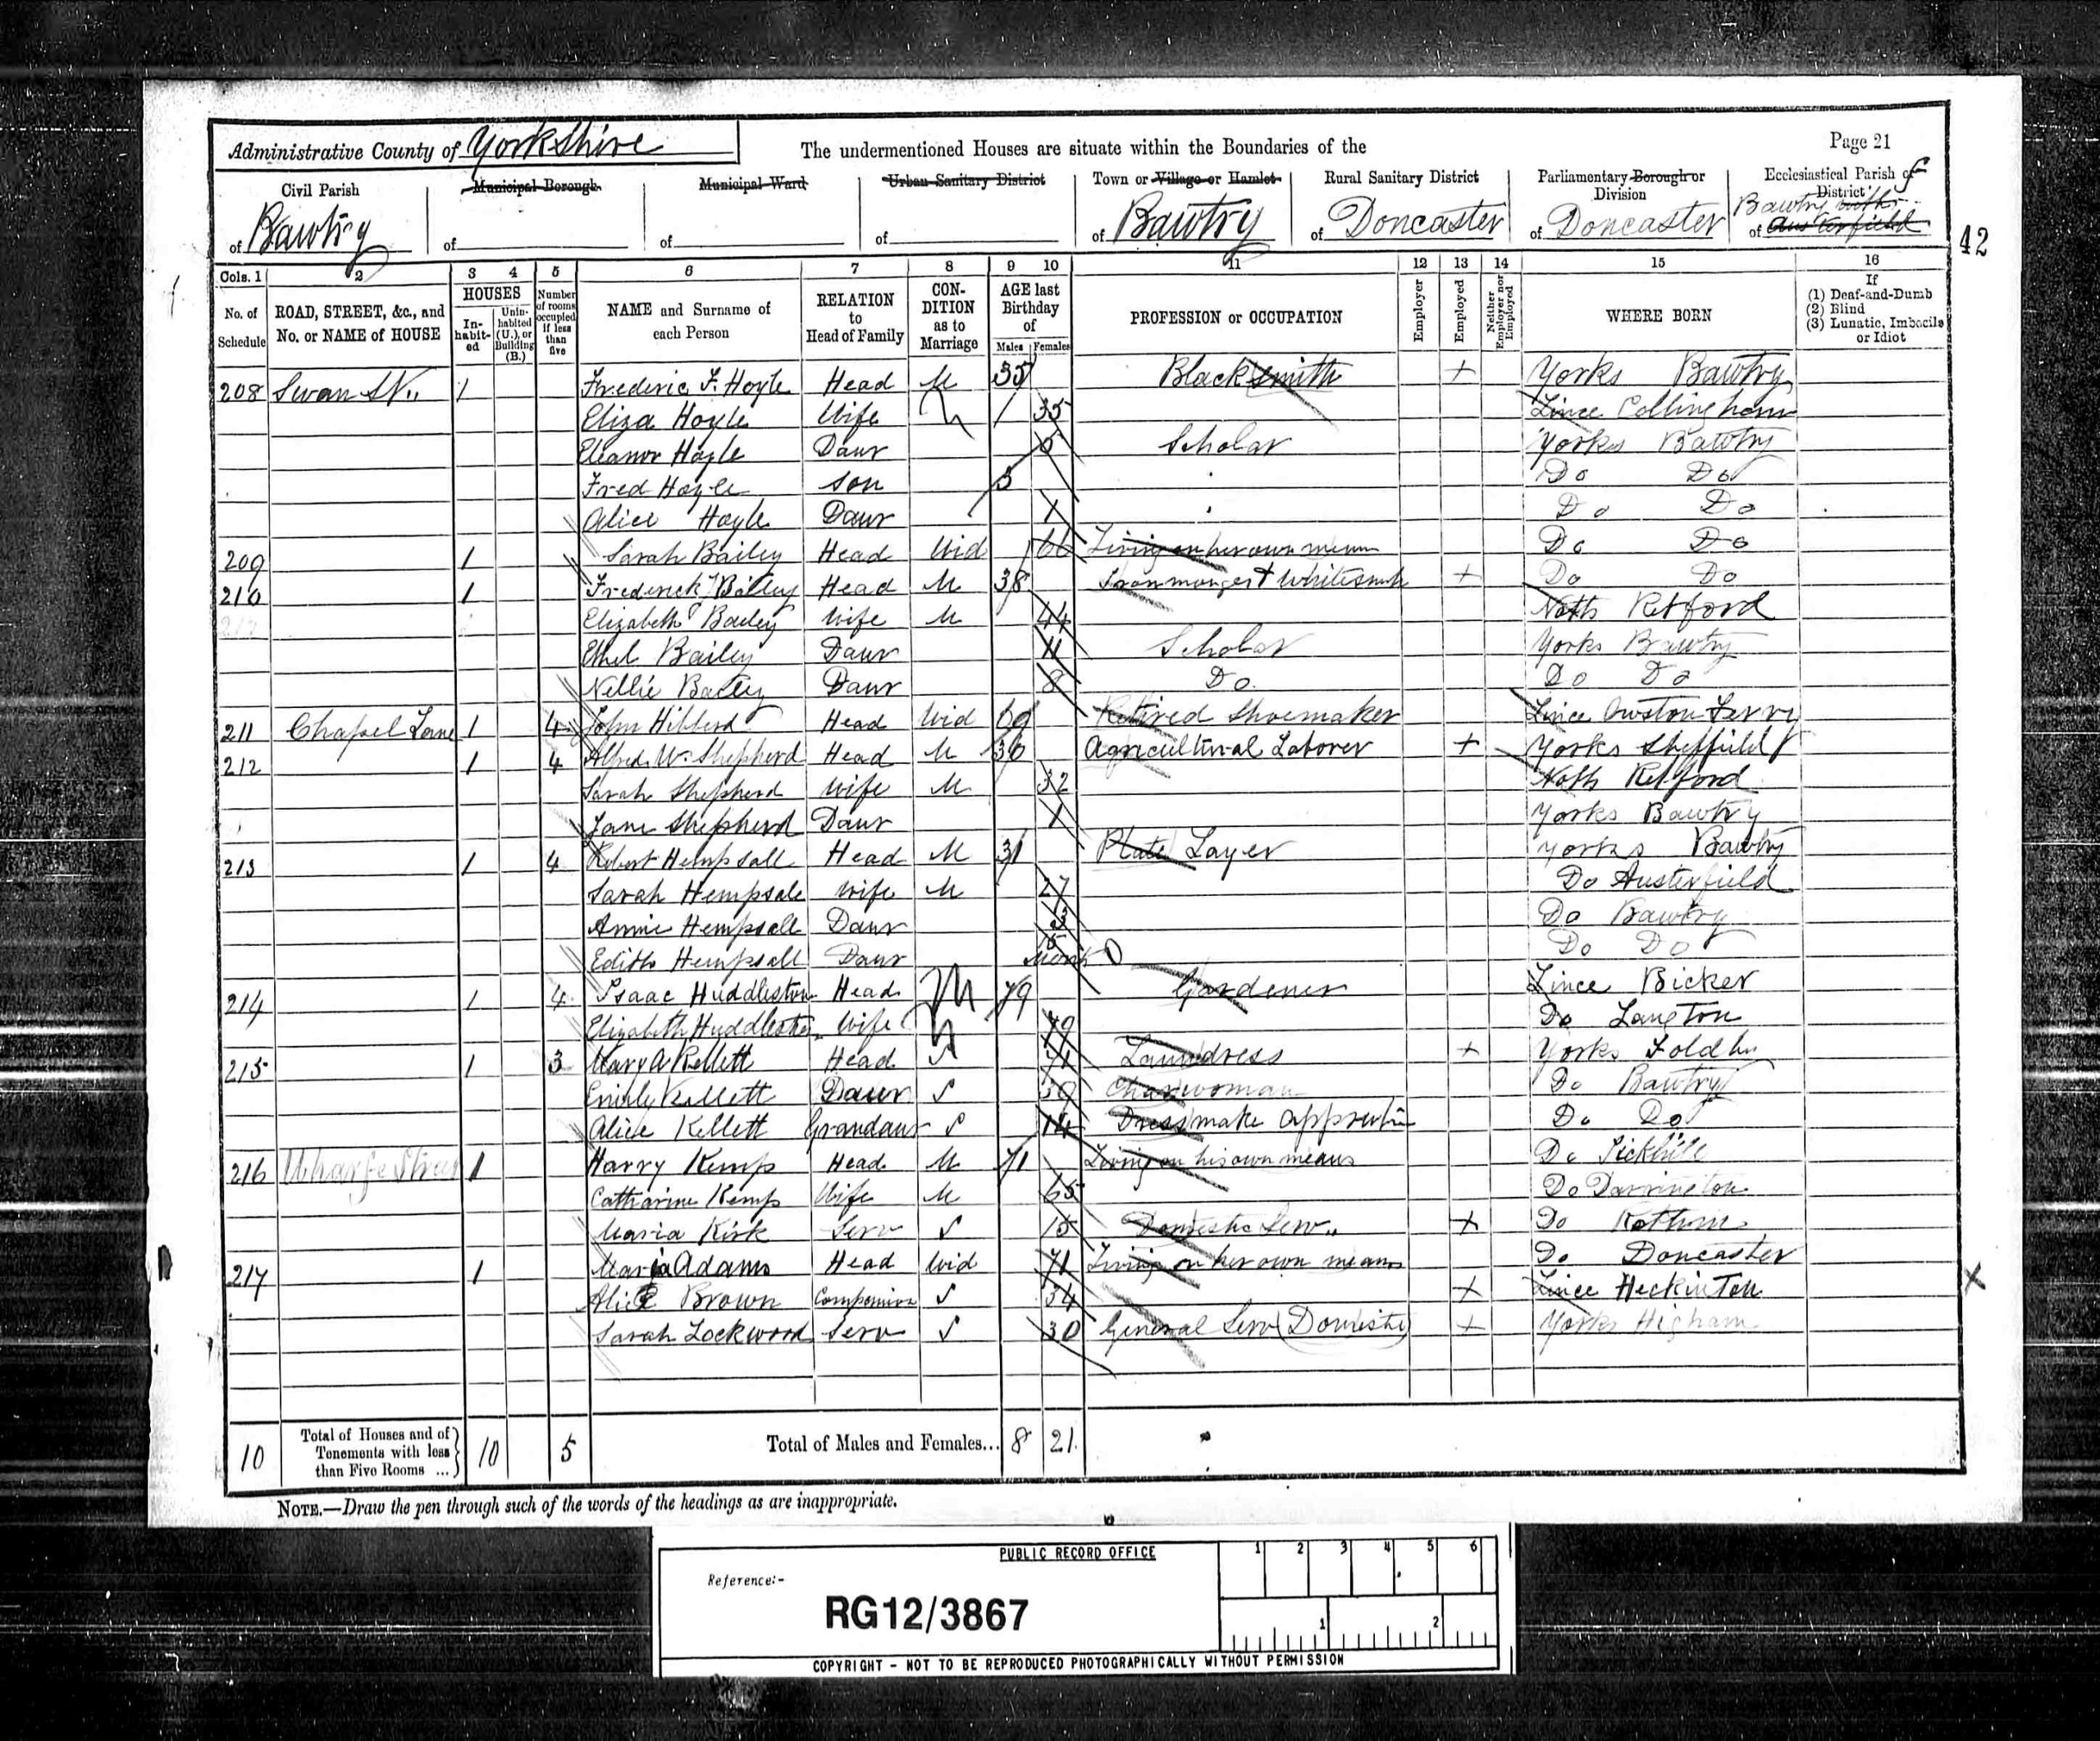 Administrative County of Yorkshire
The undermentioned Houses are situate within the Boundaries of the
Page 21
Civil Parish of Bawtry
Municipal Borough of
Municipal Ward of
Urban Sanitary District of
Town or Village or Hamlet of Bawtry
Rural Sanitary District of Doncaster
Parliamentary Borough or Division of Doncaster
Ecclesiastical Parish or District of Bawtry with Austerfield
42
Cols. 1 2 3 4 5 6 7 8 9 10 11 12 13 14 15 16
No. of Schedule
ROAD, STREET, &c., and No. or NAME of HOUSE
HOUSES
In-habit-ed
Unin-habited (U.), or Building (B.)
Number of rooms occupied if less than five
NAME and Surname of each Person
RELATION to Head of Family
CON-DITION as to Marriage
AGE last Birthday of
Males Females
PROFESSION or OCCUPATION
Employer
Employed
Neither Employer nor Employed
WHERE BORN
If
(1) Deaf-and-Dumb
(2) Blind
(3) Lunatic, Imbecile or Idiot
208 Swan St,, 1 Frederic F. Hoyle Head M 35 Blacksmith + Yorks Bawtry
Eliza Hoyle Wife M 35 Lince Collingham
Eleanor Hoyle Daur 5 Scholar Yorks Bawtry
Fred Hoyle Son 3 Do Do
Alice Hoyle Daur 1 Do Do
209 1 Sarah Bailey Head Wid 66 Living on her own means Do Do
210 1 Frederick Bailey Head M 38 Ironmonger & Whitesmith + Do Do
Elizabeth Bailey Wife M 44 Notts Retford
Ethel Bailey Daur 11 Scholar Yorks Bawtry
Nellie Bailey Daur 8 Do Do Do
211 Chapel Lane 1 4 John Hibberd Head Wid 69 Retired Shoemaker Lince Owston Ferry
212 1 4 Alfred W. Shepherd Head M 36 Agricultural Laborer + Yorks Sheffield
Sarah Shepherd Wife M 32 Notts Retford
Jane Shepherd Daur 1 Yorks Bawtry
213 1 4 Robert Hempsall Head M 31 Plate Layer Yorks Bawtry
Sarah Hempsall Wife M 27 Do Austerfield
Annie Hempsall Daur 3 Do Bawtry
Edith Hempsall Daur 5 Month Do Do
214 1 4 Isaac Huddleston Head M 79 Gardener Lince Bicker
Elizabeth Huddleston Wife M 79 Do Langton
215 1 3 Mary A Kellett Head S 71 Laundress + Yorks
Emily Kellett Daur S 38 Charwoman Do Bawtry
Alice Kellett Grandaur S 14 Dressmake Do Do
216 Wharfe Street 1 Harry Kemp Head M 71 Living on his own means Do
Catharine Kemp Wife M 65 Do Darrington
Maria Kirk Serv S 15 Domestic Serv,, + Do
217 1 Maria Adams Head Wid 71 Living on her own means Do Doncaster
Alice Brown Companion S 34 + Lince Heckinton X
Sarah Lockwood Serv S 30 General Serv (Domestic) + Yorks Higham
10 Total of Houses and of Tenements with less than Five Rooms ... 10 5 Total of Males and Females... 8 21
NOTE.—Draw the pen through such of the words of the headings as are inappropriate.
PUBLIC RECORD OFFICE
1 2 3 4 5 6
Reference:-
RG12/3867
1 2
COPYRIGHT - NOT TO BE REPRODUCED PHOTOGRAPHICALLY WITHOUT PERMISSION